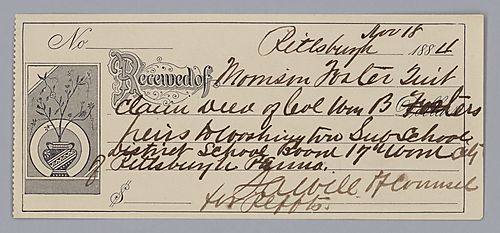 Nov 18
No Pittsburgh 1884
Received of Morrison Foster Quit
claim deed of Col Wm B Fosters
heirs to Washington Sub School
District School Board 17th Ward City
of Pittsburgh Penna.
$ Counsel
for